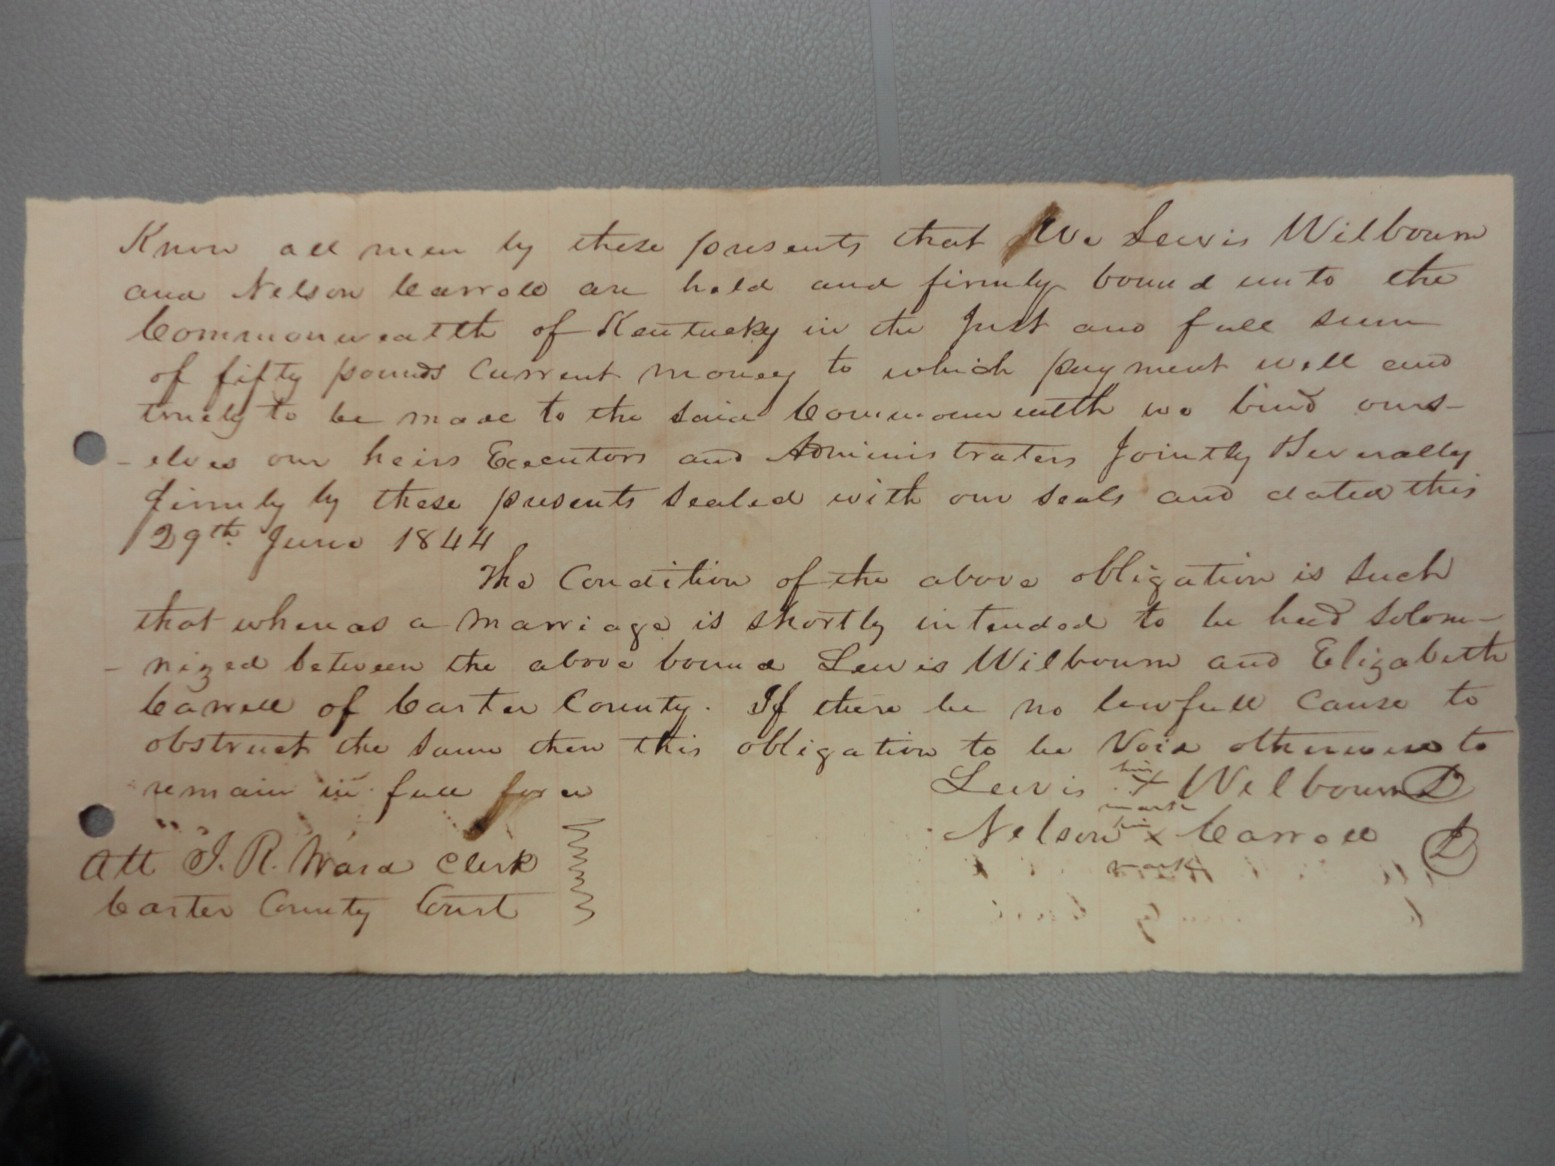 Know all men by these presents that We Lewis Wilbourn
and Nelson Carroll are held and firmly bound unto the
Commonwealth of Kentucky in the Just and full sum
of fifty pounds Current money to which payment well and
truely to be made to the said Commonwealth we bind ours-
-elves our heirs Executors and Administraters Jointly Severally
firmly by these presents sealed with our seals and dated this
29th June 1844
The Condition of the above obligation is such
that whereas a marriage is shortly intended to be had solem-
-nized between the above bound Lewis Wilbourn and Elizabeth
Carrell of Carter County. If there be no lawfull cause to
obstruct the same then this obligation to be Void otherwise to
remain in full force
Lewis his X mark Wilbourn
Nelson his X mark Carroll
Att J. R. Ward Clerk
Carter County Court